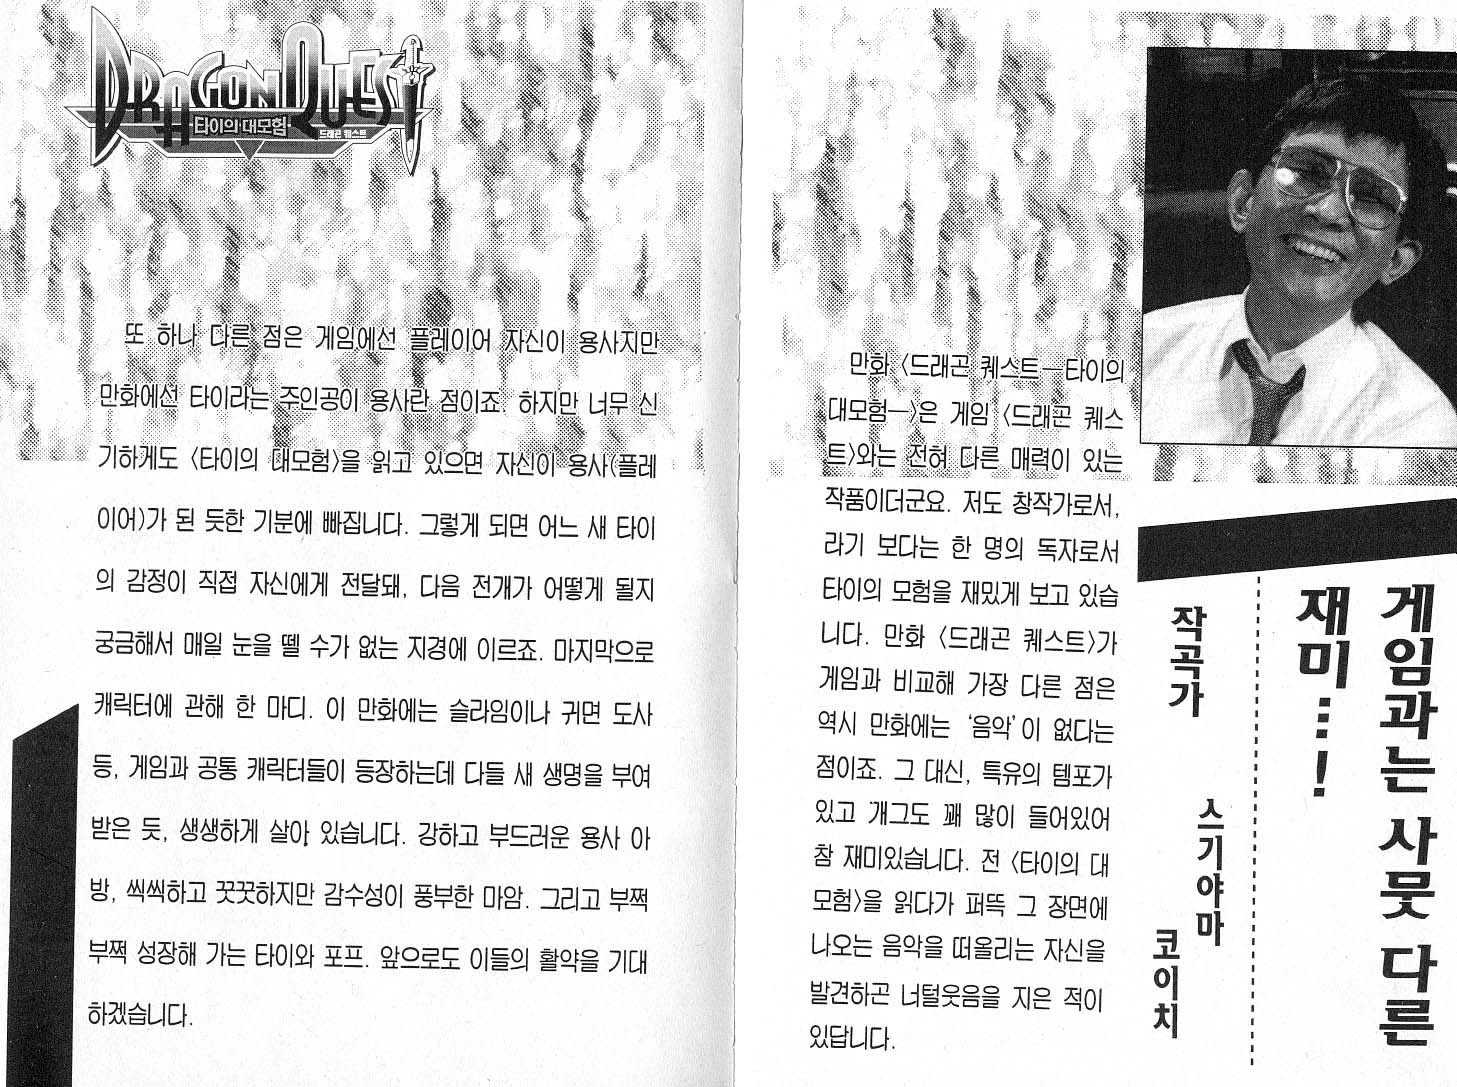 게임과는 사뭇 다른
재미…!
작곡가
스기야마
코이치
만화 〈드래곤 퀘스트―타이의
대모험―〉은 게임 〈드래곤 퀘스
트〉와는 전혀 다른 매력이 있는
작품이더군요. 저도 창작가로서,
라기 보다는 한 명의 독자로서
타이의 모험을 재밌게 보고 있습
니다. 만화 〈드래곤 퀘스트〉가
게임과 비교해 가장 다른 점은
역시 만화에는 ‘음악’이 없다는
점이죠. 그 대신, 특유의 템포가
있고 개그도 꽤 많이 들어있어
참 재미있습니다. 전 〈타이의 대
모험〉을 읽다가 퍼뜩 그 장면에
나오는 음악을 떠올리는 자신을
발견하곤 너털웃음을 지은 적이
있답니다.
DRAGON QUEST
·타이의 대모험·
드래곤 퀘스트
또 하나 다른 점은 게임에선 플레이어 자신이 용사지만
만화에선 타이라는 주인공이 용사란 점이죠. 하지만 너무 신
기하게도 〈타이의 대모험〉을 읽고 있으면 자신이 용사(플레
이어)가 된 듯한 기분에 빠집니다. 그렇게 되면 어느 새 타이
의 감정이 직접 자신에게 전달돼, 다음 전개가 어떻게 될지
궁금해서 매일 눈을 뗄 수가 없는 지경에 이르죠. 마지막으로
캐릭터에 관해 한 마디. 이 만화에는 슬라임이나 귀면 도사
등, 게임과 공통 캐릭터들이 등장하는데 다들 새 생명을 부여
받은 듯, 생생하게 살아 있습니다. 강하고 부드러운 용사 아
방, 씩씩하고 꿋꿋하지만 감수성이 풍부한 마암. 그리고 부쩍
부쩍 성장해 가는 타이와 포프. 앞으로도 이들의 활약을 기대
하겠습니다.